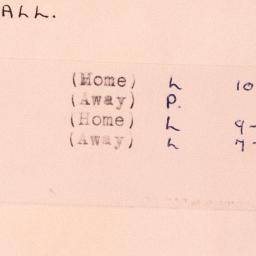 ALL.
(Home) L 10
(Away) P.
(Home) L 9-
(Away) L 7-